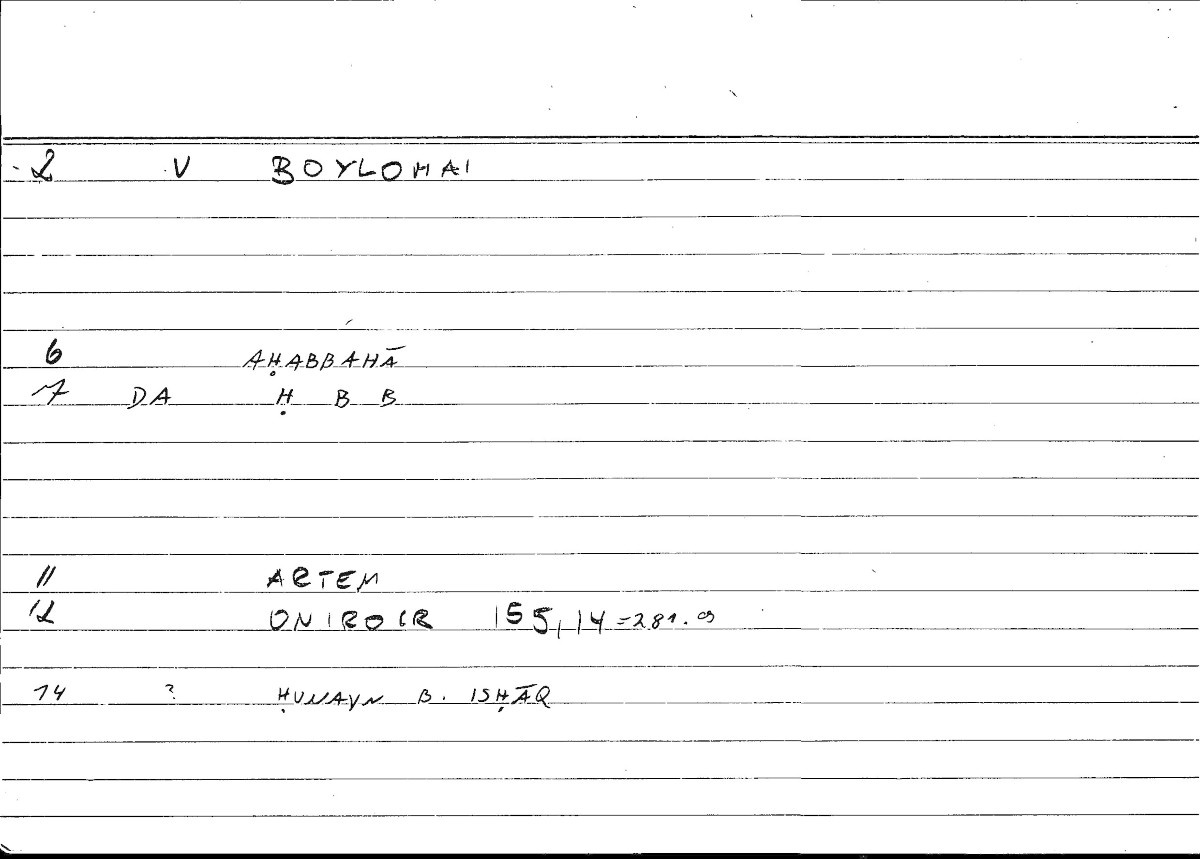 2 V BOYLOMAI
6 AḤABBAHĀ
7 DA Ḥ B B
11 ARTEM
12 ONIROCR 155,14 = 281.9
14 ? ḤUNAYN B. ISḤĀQ